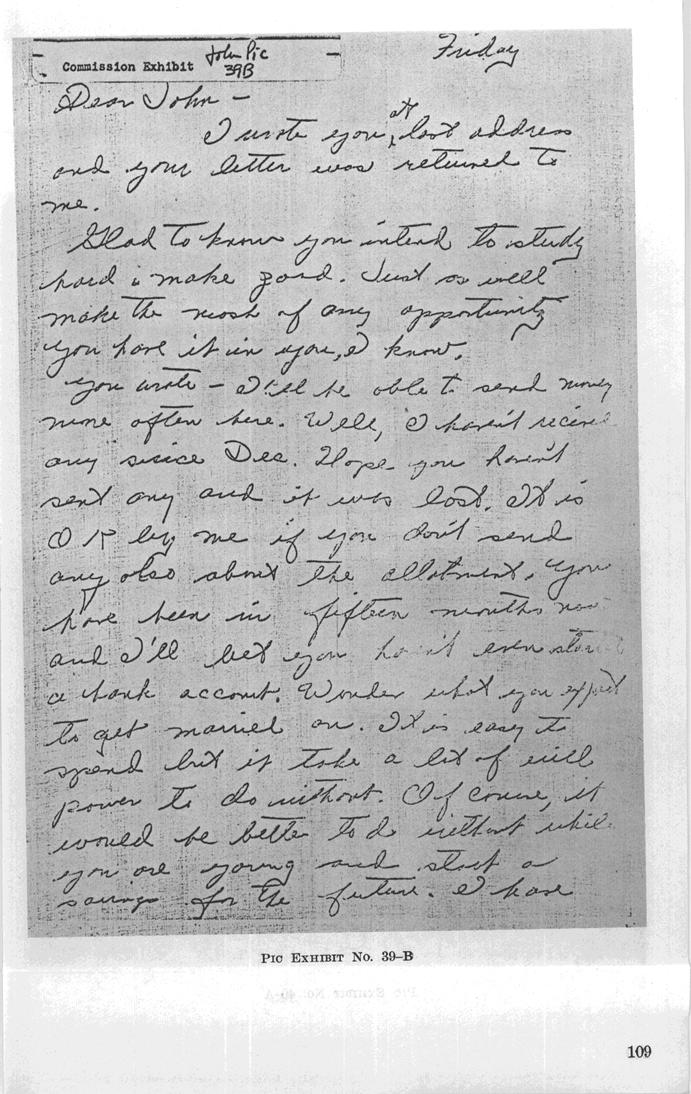 Commission Exhibit John Pic
39B
Friday
Dear John -
I wrote you at last address
and your letter was returned to
me.
Glad to know you intend to study
hard & make good. Just as well
make the most of any opportunity
you have it in you, I know.
You wrote - I'll be able to send money
more often here. Well, I haven't receive
any since Dec. Hope you haven't
sent any and it was lost. It is
OK by me if you don't send
any also about the allotment. You
have been in fifteen months now
and I'll bet you hav'nt even
a bank account. Wonder what you expect
to get married on. It is easy to
spend but it take a lot of will
power to do without. Of course, it
would be better to do without while
you are young and start a
savings for the future. I have
PIC EXHIBIT No. 39–B
109